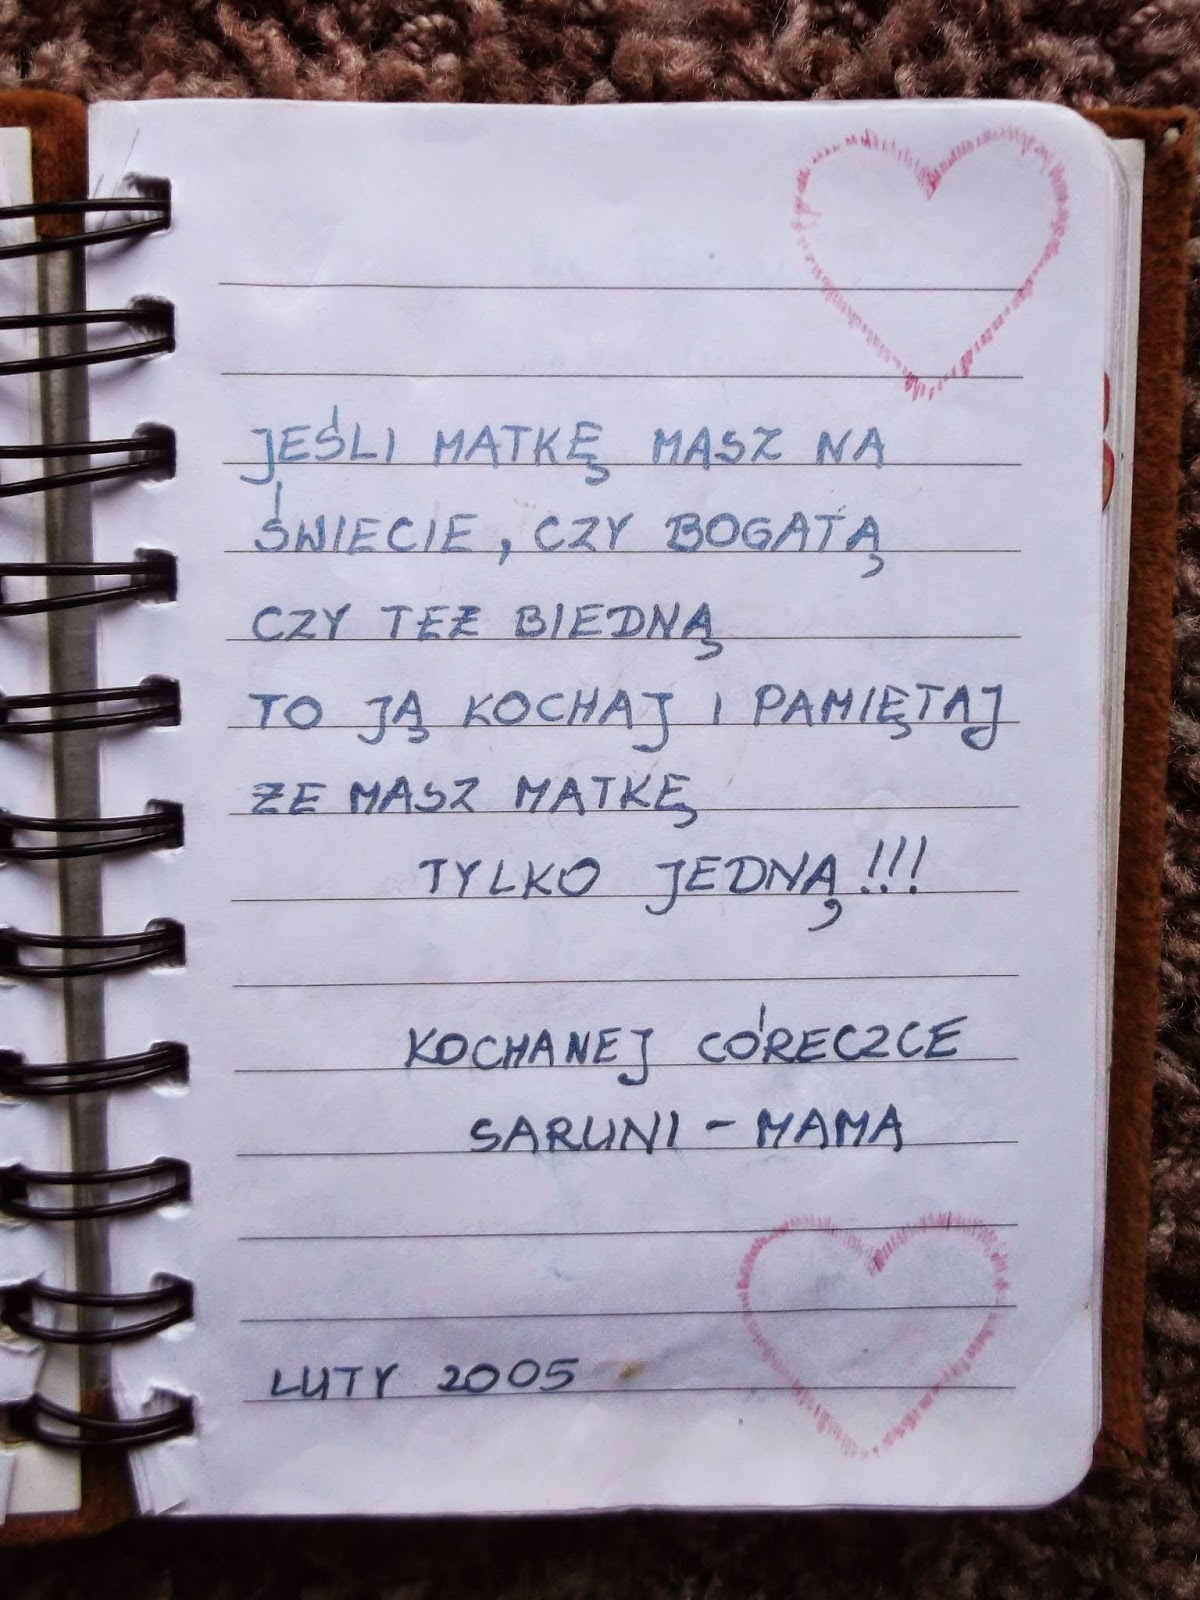 JEŚLI MATKĘ MASZ NA
ŚWIECIE, CZY BOGATĄ
CZY TEƵ BIEDNĄ
TO JĄ KOCHAJ I PAMIĘTAJ
ƵE MASZ MATKĘ
TYLKO JEDNĄ!!!
KOCHANEJ CÓRECZCE
SARUNI - MAMA
LUTY 2005